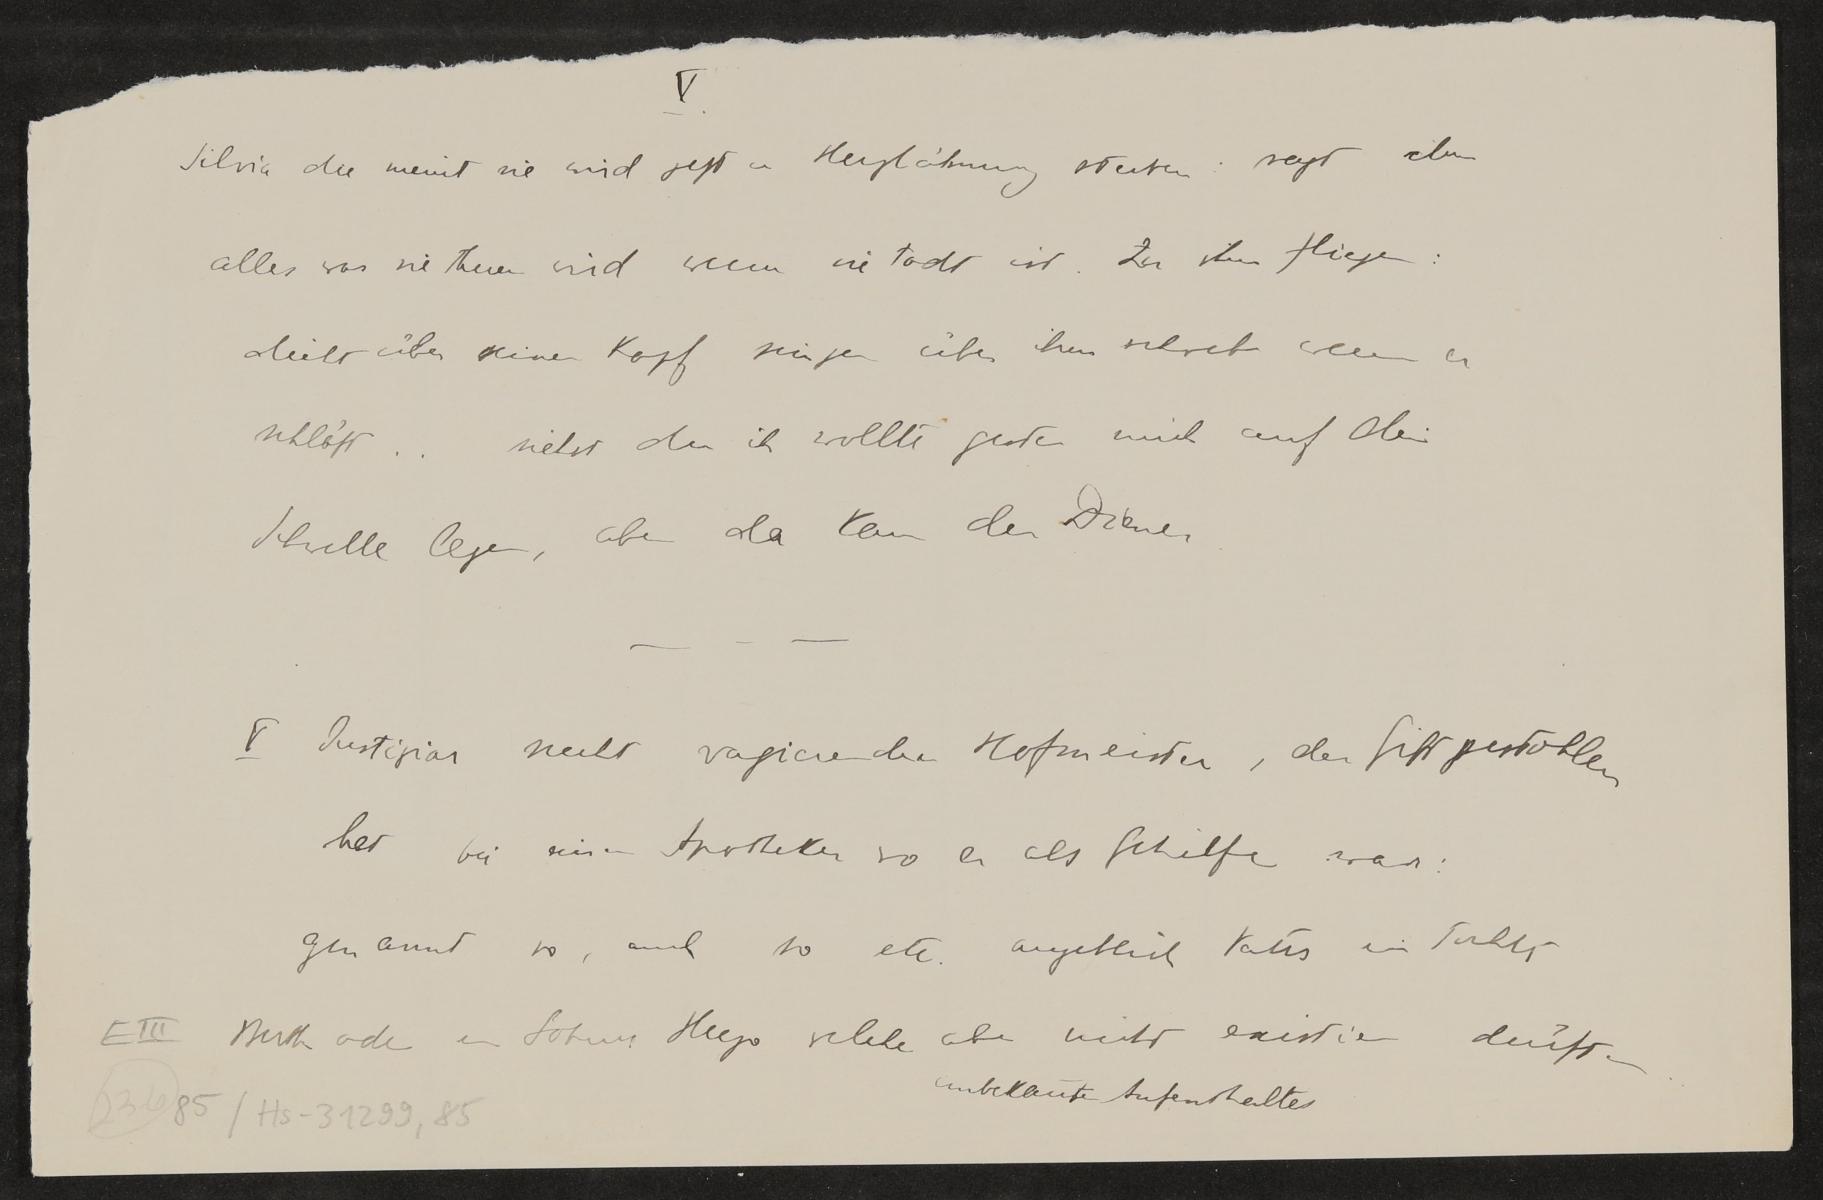 V.
Silvia die meint sie wird jetzt an Herzlähmung sterben: sagt ihm
alles was sie thuen wird wenn sie todt ist. Zu ihm fliegen:
dicht über seinen Kopf singen über ihm schweben wenn er
schläft .. siehst du ich wollte gestern mich auf Deine
Schwelle legen, aber da kam der Diener
— - —
V Justiziar sucht vagierenden Hofmeister, der Gift gestohlen
hat bei einem Apotheker wo er als Gehilfe war:
genannt so, auch so etc. angeblich Vaters einer Tochter
oder eines Sohnes Hugo welche aber nicht existieren dürften
unbekannten Aufenthaltes
E III
236 85 / Hs-31299,85